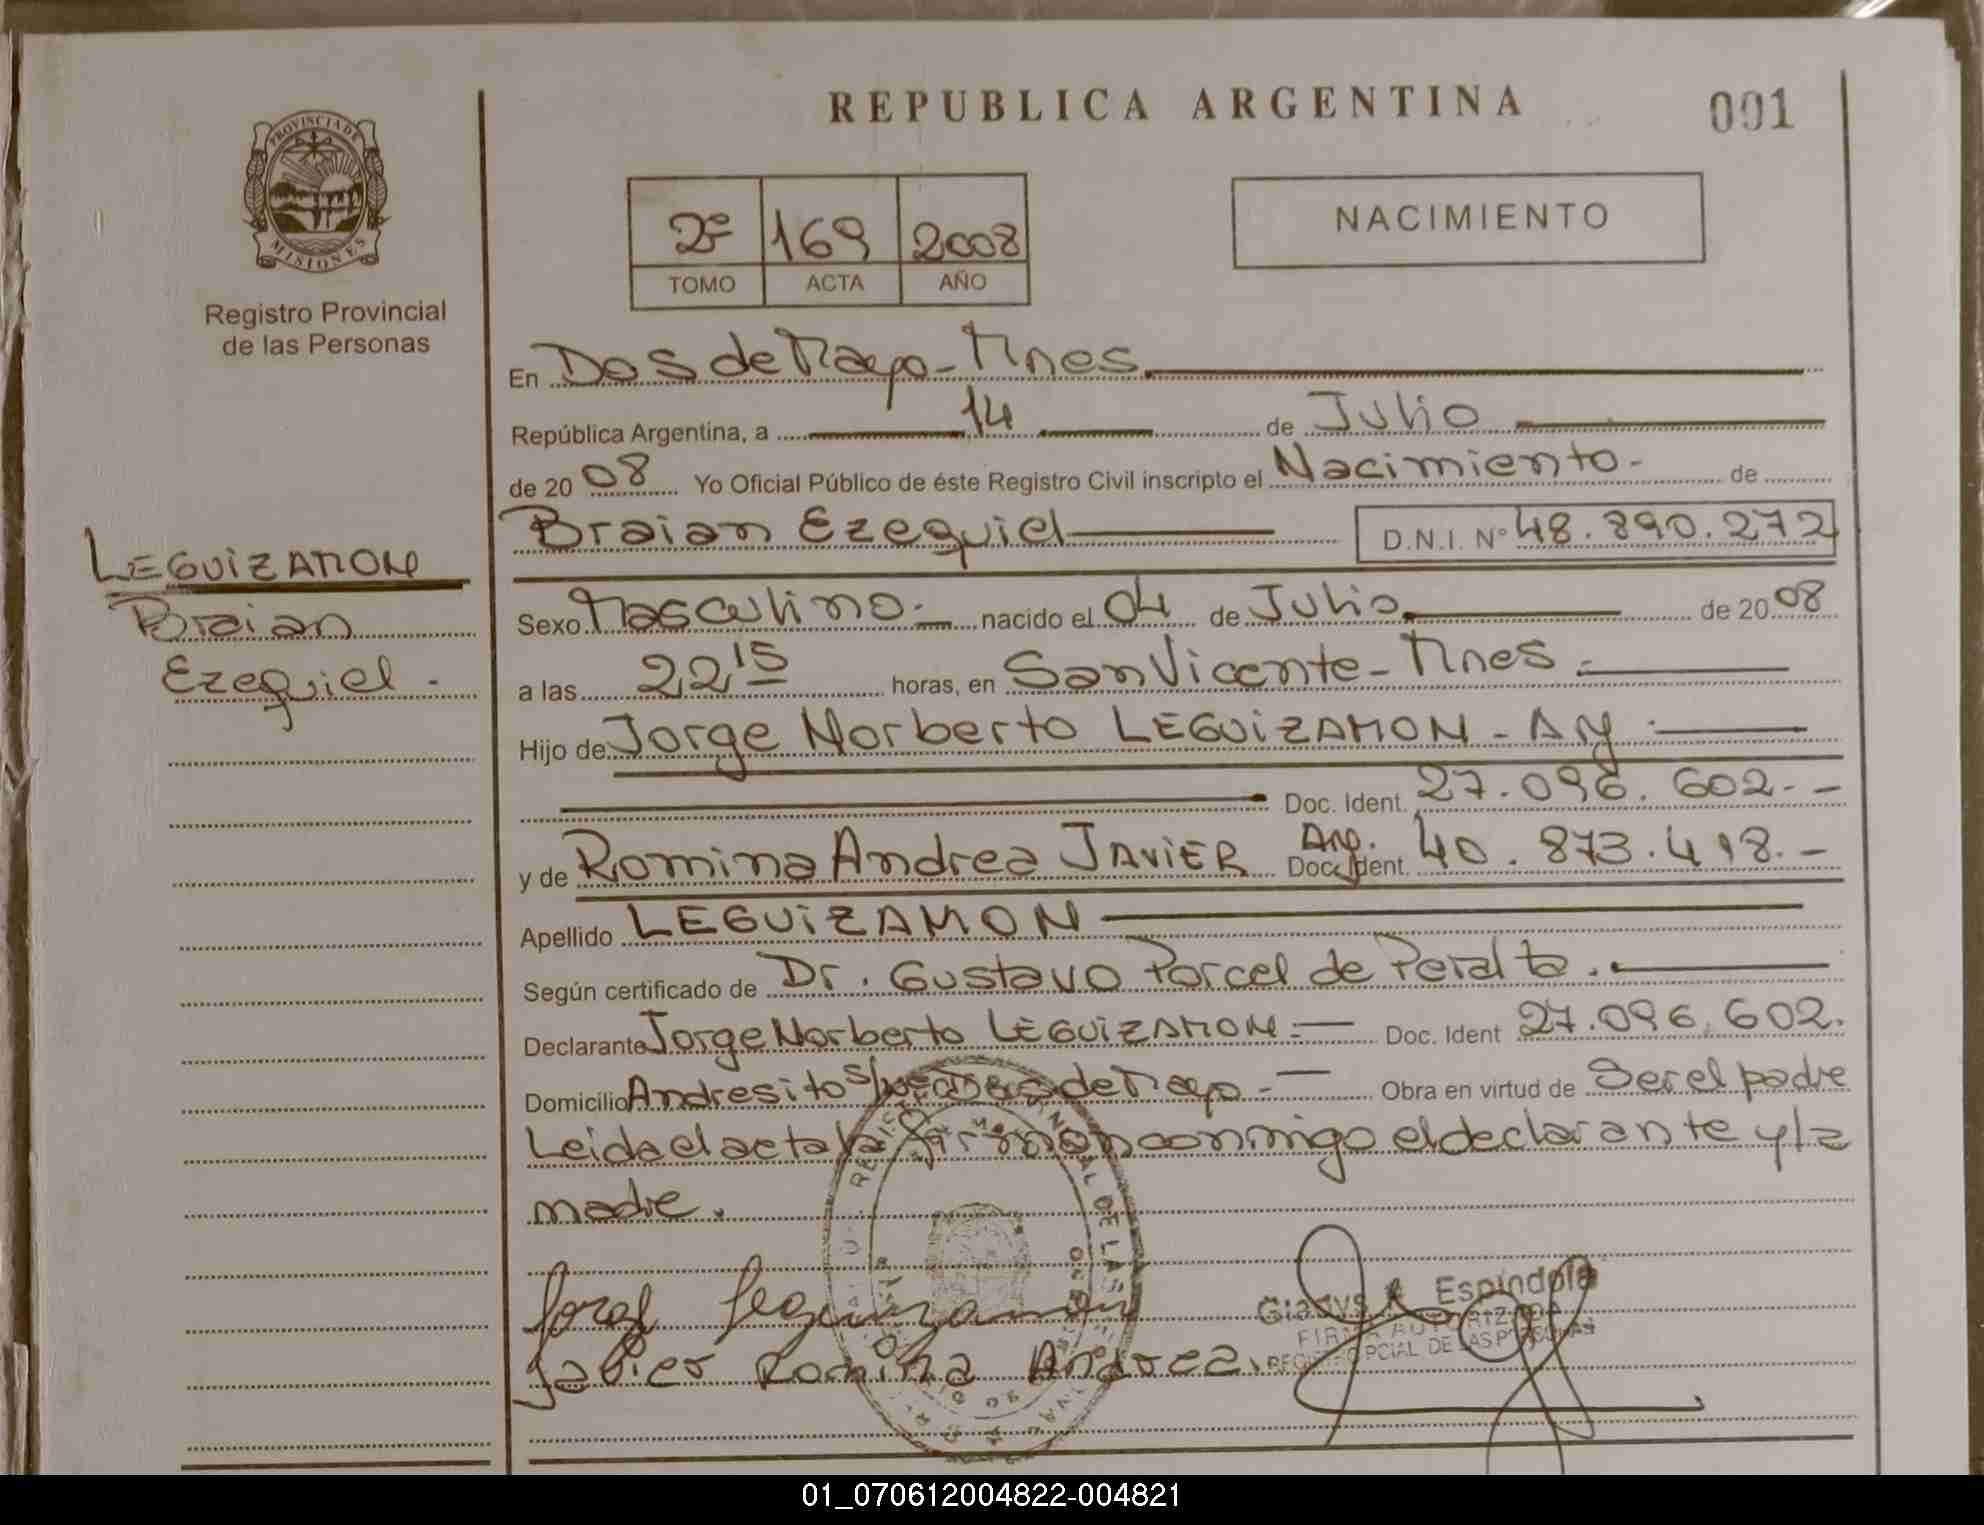 REPUBLICA ARGENTINA
001
PROVINCIA DE
MISIONES
Registro Provincial
de las Personas
2º 169 2008
TOMO ACTA AÑO
NACIMIENTO
En Dos de Mayo - Mnes.
República Argentina, a 14 de Julio
de 2008 Yo Oficial Público de éste Registro Civil inscripto el Nacimiento - de
Braian Ezequiel D.N.I. Nº 48.890.272
LEGUIZAMON
Braian
Ezequiel.
Sexo Masculino.- nacido el 04 de Julio. de 2008
a las 22 15 horas, en San Vicente - Mnes.
Hijo de Jorge Norberto LEGUIZAMON - Arg.
Doc. Ident. 27.096.602.-
y de Romina Andrea JAVIER Arg. Doc. Ident. 40.873.418.-
Apellido LEGUIZAMON
Según certificado de Dr. Gustavo Porcel de Peralta.
Declarante Jorge Norberto LEGUIZAMON.- Doc. Ident 27.096.602.
Domicilio Andresito s/nº Dos de Mayo.- Obra en virtud de Ser el padre
Leida el acta la firman conmigo el declarante y la
madre.
Jorge Leguizamon
Gladys Espíndola
FIRMA AUTORIZADA
REGISTRO PCIAL DE LAS PERSONAS
Jabier Romina Andrea.
01_070612004822-004821